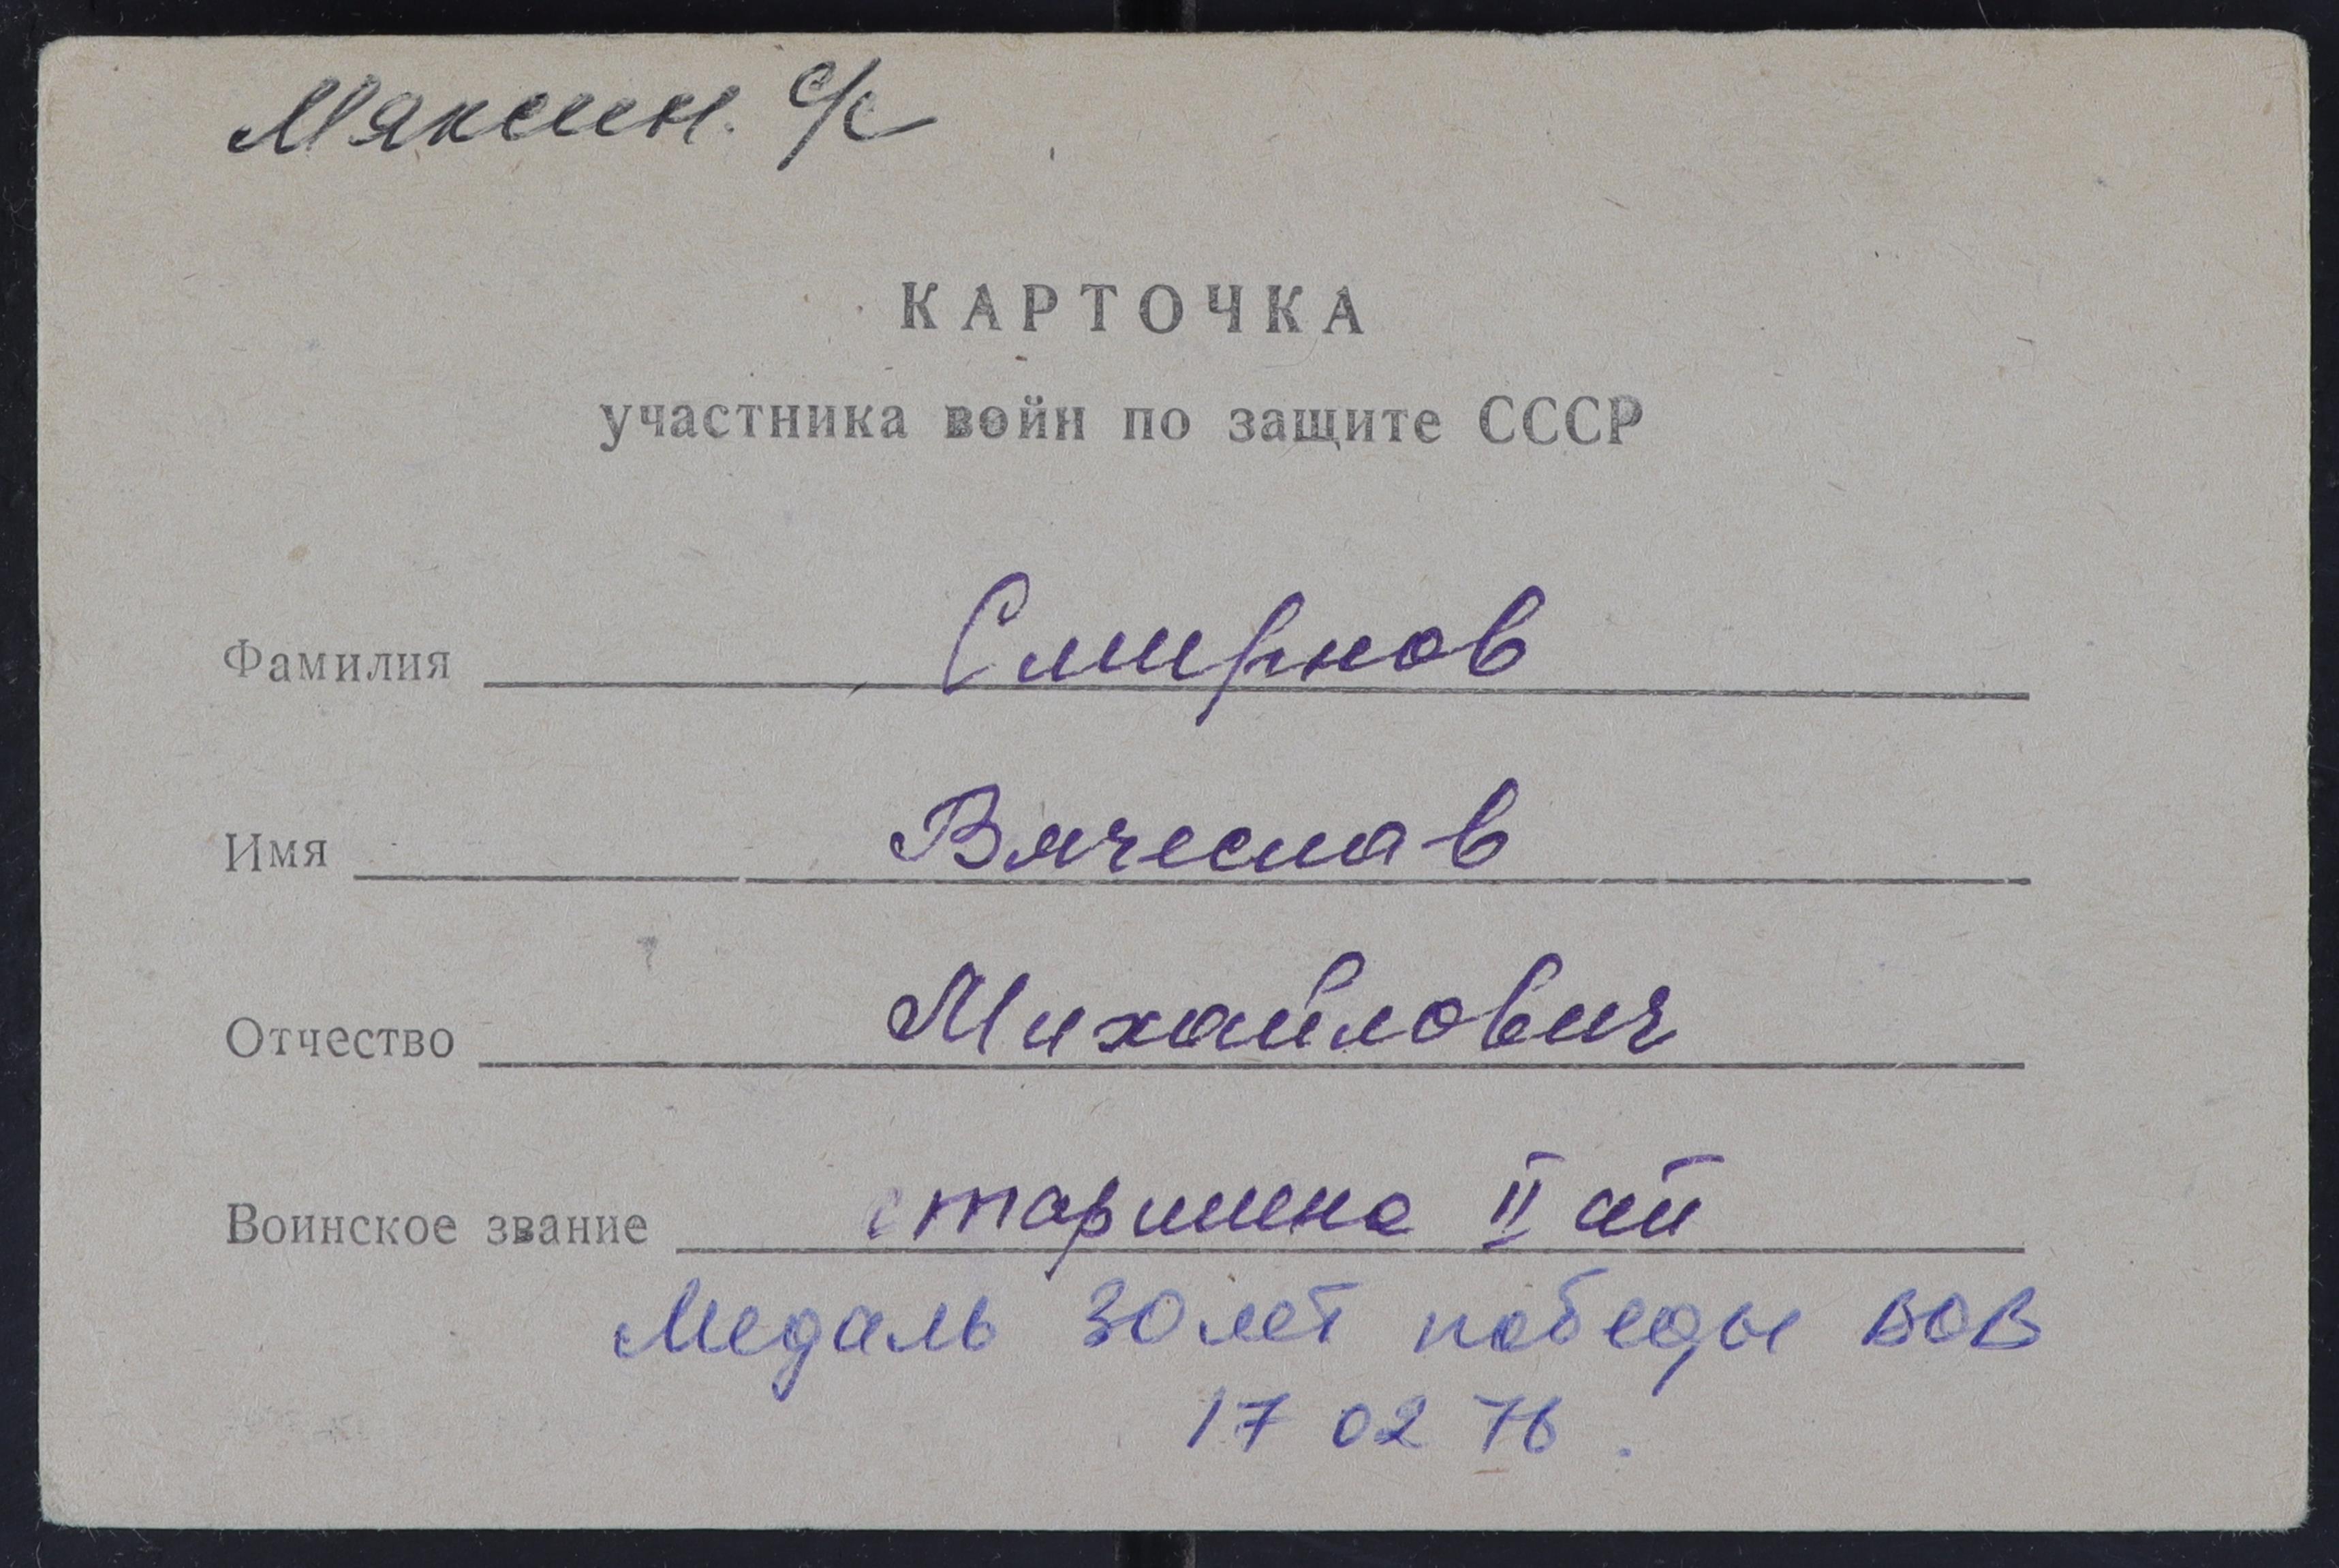 Мяксин. с/с
КАРТОЧКА
участника войн по защите СССР
Фамилия Смирнов
Имя Вячеслав
Отчество Михайлович
Воинское звание старшина II ст
Медаль 30 лет победы ВОВ
17 02 76.